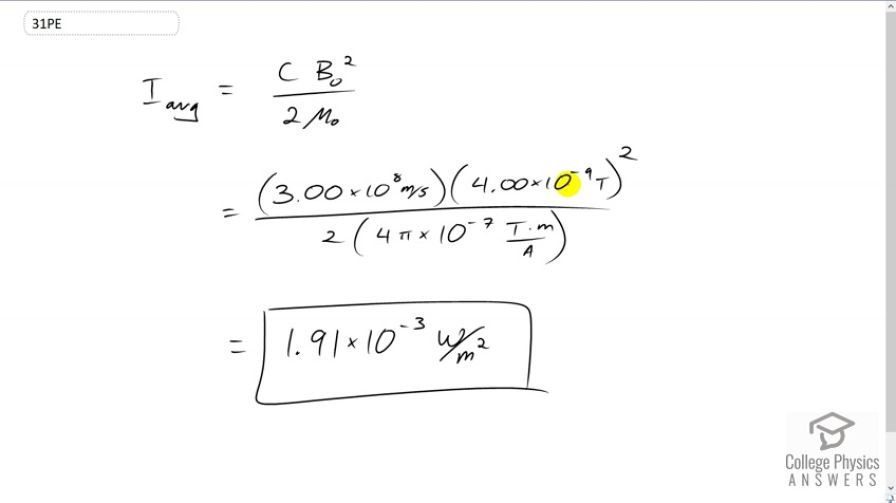 31PE
I_avg = C B₀² / 2 μ₀
= (3.00 × 10⁸ m/s)(4.00 × 10⁻⁹ T)² / 2 (4π × 10⁻⁷ T·m/A)
= 1.91 × 10⁻³ W/m²
College Physics
ANSWERS